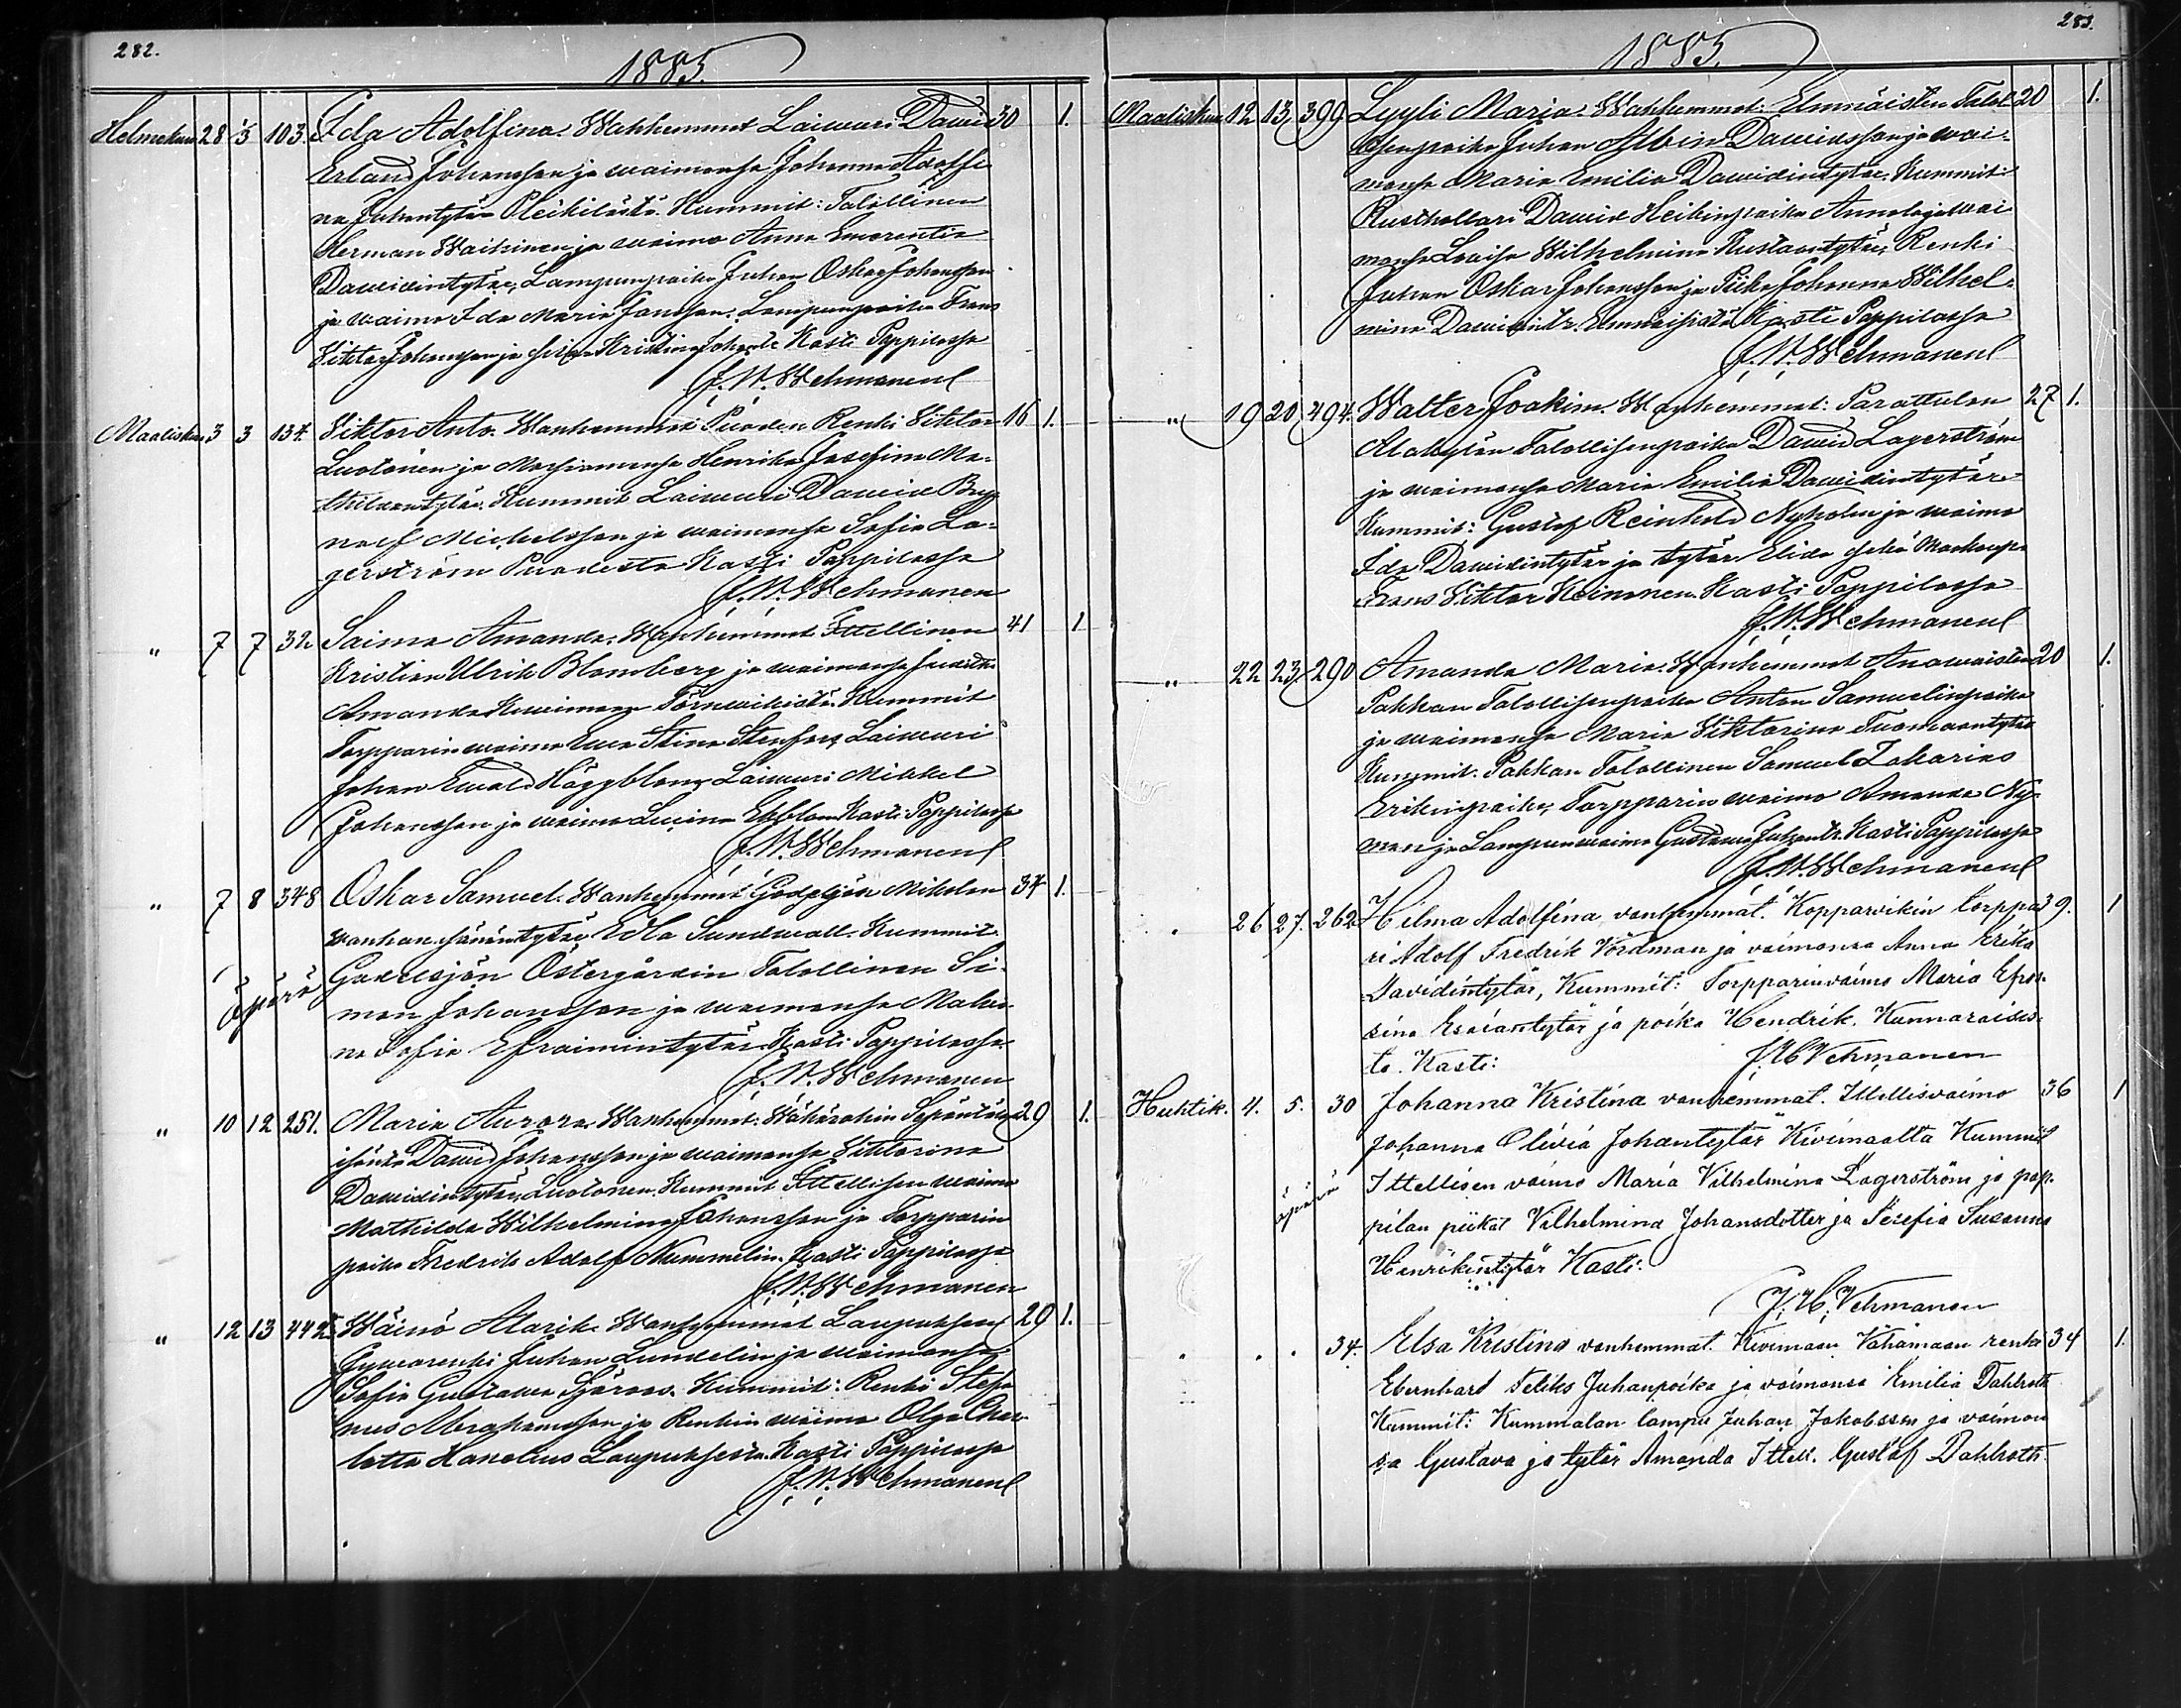 282.
1885.
Helmekuu 28 5 103. Ida Adolfina. Wanhemmat Laiwuri Dawid 30 1.
Erland Johansson ja waimonsa Johanna Adolfi
na Juhantytär Pleikilästä. Kummit: Talollinen
Herman Waihinen ja waimo Anna Emerentia
Dawidintytär, Lampunpoika Juhan Oskar Johansson
ja waimo Ida Maria Jansson. Lampunpoika Frans
Viktor Johansson ja Kristina Kasti Pappilassa
J. W. Wehmanen
Maaliskuu 3 3 134. Viktor Anto. Wanhemmat Puoden Renki Viktor 16 1.
Luotonen ja Henrika Josefina Ma-
Kummit Laiwuri Dawid
Mickelsson ja waimonsa Sofia La-
gerström Puodesta Kasti Pappilassa
J. W. Wehmanen
" 7 7 32 Saima Amanda. Wanhemmat Ittellinen 41 1
Kristian Ulrik Blomberg ja waimonsa
Amanda Kummit
Torpparinwaimo Ewa Stina Stenfors, Laiwuri
Johan Ewald Häggblom, Laiwuri Mikkel
Johansson ja waimo Ekblom Kasti Pappilassa
J. W. Wehmanen
" 7 8 348 Oskar Samuel. Wanhemmat Godelsjön Mikolan 34 1.
wanhan isännän tytär Edla Sundwall. Kummit
äpärä Godelsjön Östergårdin Talollinen Si-
mon Johansson ja waimonsa
na Sofia Efraimintytär Kasti Pappilassa.
J. W. Wehmanen
" 10 12 251. Maria Aurora. Wanhemmat: 29 1.
isäntä Dawid Johansson ja waimonsa Viktorina
Dawidintytär, Luotonen. Kummit Ittellisen waimo
Mathilda Wilhelmina Johansson ja Torpparin
poika Fredrik Adolf Nummelin. Kasti Pappilassa
J. W. Wehmanen
" 12 13 442 Wäinö Alarik. Wanhemmat Laupuksen 29 1.
Juhan Lundelin ja waimonsa
Sofia Gustawa Sjöroos. Kummit: Renki Stefa
nus Abrahamsson ja Renkin waimo Olga Char
lotta Hanelius Laupuksesta. Kasti Pappilassa
J. W. Wehmanen
283.
1885.
Maaliskuu 12 13 399 Lyyli Maria. Wanhemmat: Elmnäisten Talol 20 1.
lisenpoika Juhan Albin Dawidsson ja wai-
monsa Maria Emilia Dawidintytär. Kummit:
Rusthollari Dawid Heikinpoika Annola ja wai
monsa Lowisa Wilhelmina Kustaantytär, Renki
Juhan Oskar Johansson ja Piika Johanna Wilhel-
mina Kasti Pappilassa
J. W. Wehmanen
" 19 20 494. Walter Joakim. Wanhemmat: Parattulan 27 1.
Alakylän Talollisenpoika Dawid Lagerström
ja waimonsa Maria Emilia Dawidintytär
Kummit: Gustaf Reinhold Nyholm ja waimo
Ida Dawidintytär ja tytär Elida sekä
Frans Viktor Heinonen. Kasti Pappilassa
J. W. Wehmanen
" 22 23 290 Amanda Maria. Wanhemmat Anawaisten 20 1.
Pakkan Talollisenpoika Anton Samuelinpoika
ja waimonsa Maria Viktorina Tuomaantytär
Kummit. Pakkan Talollinen Samuel Zakarias
Erikinpoika, Torpparin waimo Amanda Ny-
man ja Lampunwaimo Gustawa Juhantr. Kasti Pappilassa
J. W. Wehmanen
. 26 27. 262 Hilma Adolfina, vanhemmat: Kopparvikin torppa 39. 1
ri Adolf Fredrik Vördman ja vaimonsa Anna Erika
Davidintytär, Kummit: Torpparinvaimo Maria Efro-
sina Esaiantytär ja poika Hendrik. Kunnaraisis-
ta. Kasti:
J. W. Vehmanen
Huhtik. 4. 5. 30 Johanna Kristina vanhemmat. Ittellisvaimo 36 1
Johanna Olivia Johantytär Kivimaalta Kummit
äpärä Ittellisen vaimo Maria Vilhelmina Lagerström ja pap-
pilan piikat Vilhelmina Johansdotter ja Serefia Susanna
Henrikintytär Kasti:
J. W. Vehmanen
. . . 34. Elsa Kristina vanhemmat. Kivimaan Vähämaan renki 34 1.
Ebernhard Feliks Juhanpoika ja vaimonsa Emilia Dahlroth
Kummit: Kummalan lampu Juhan Jakobsson ja vaimon
sa Gustava ja tytär Amanda Ittell. Gustaf Dahlroth.